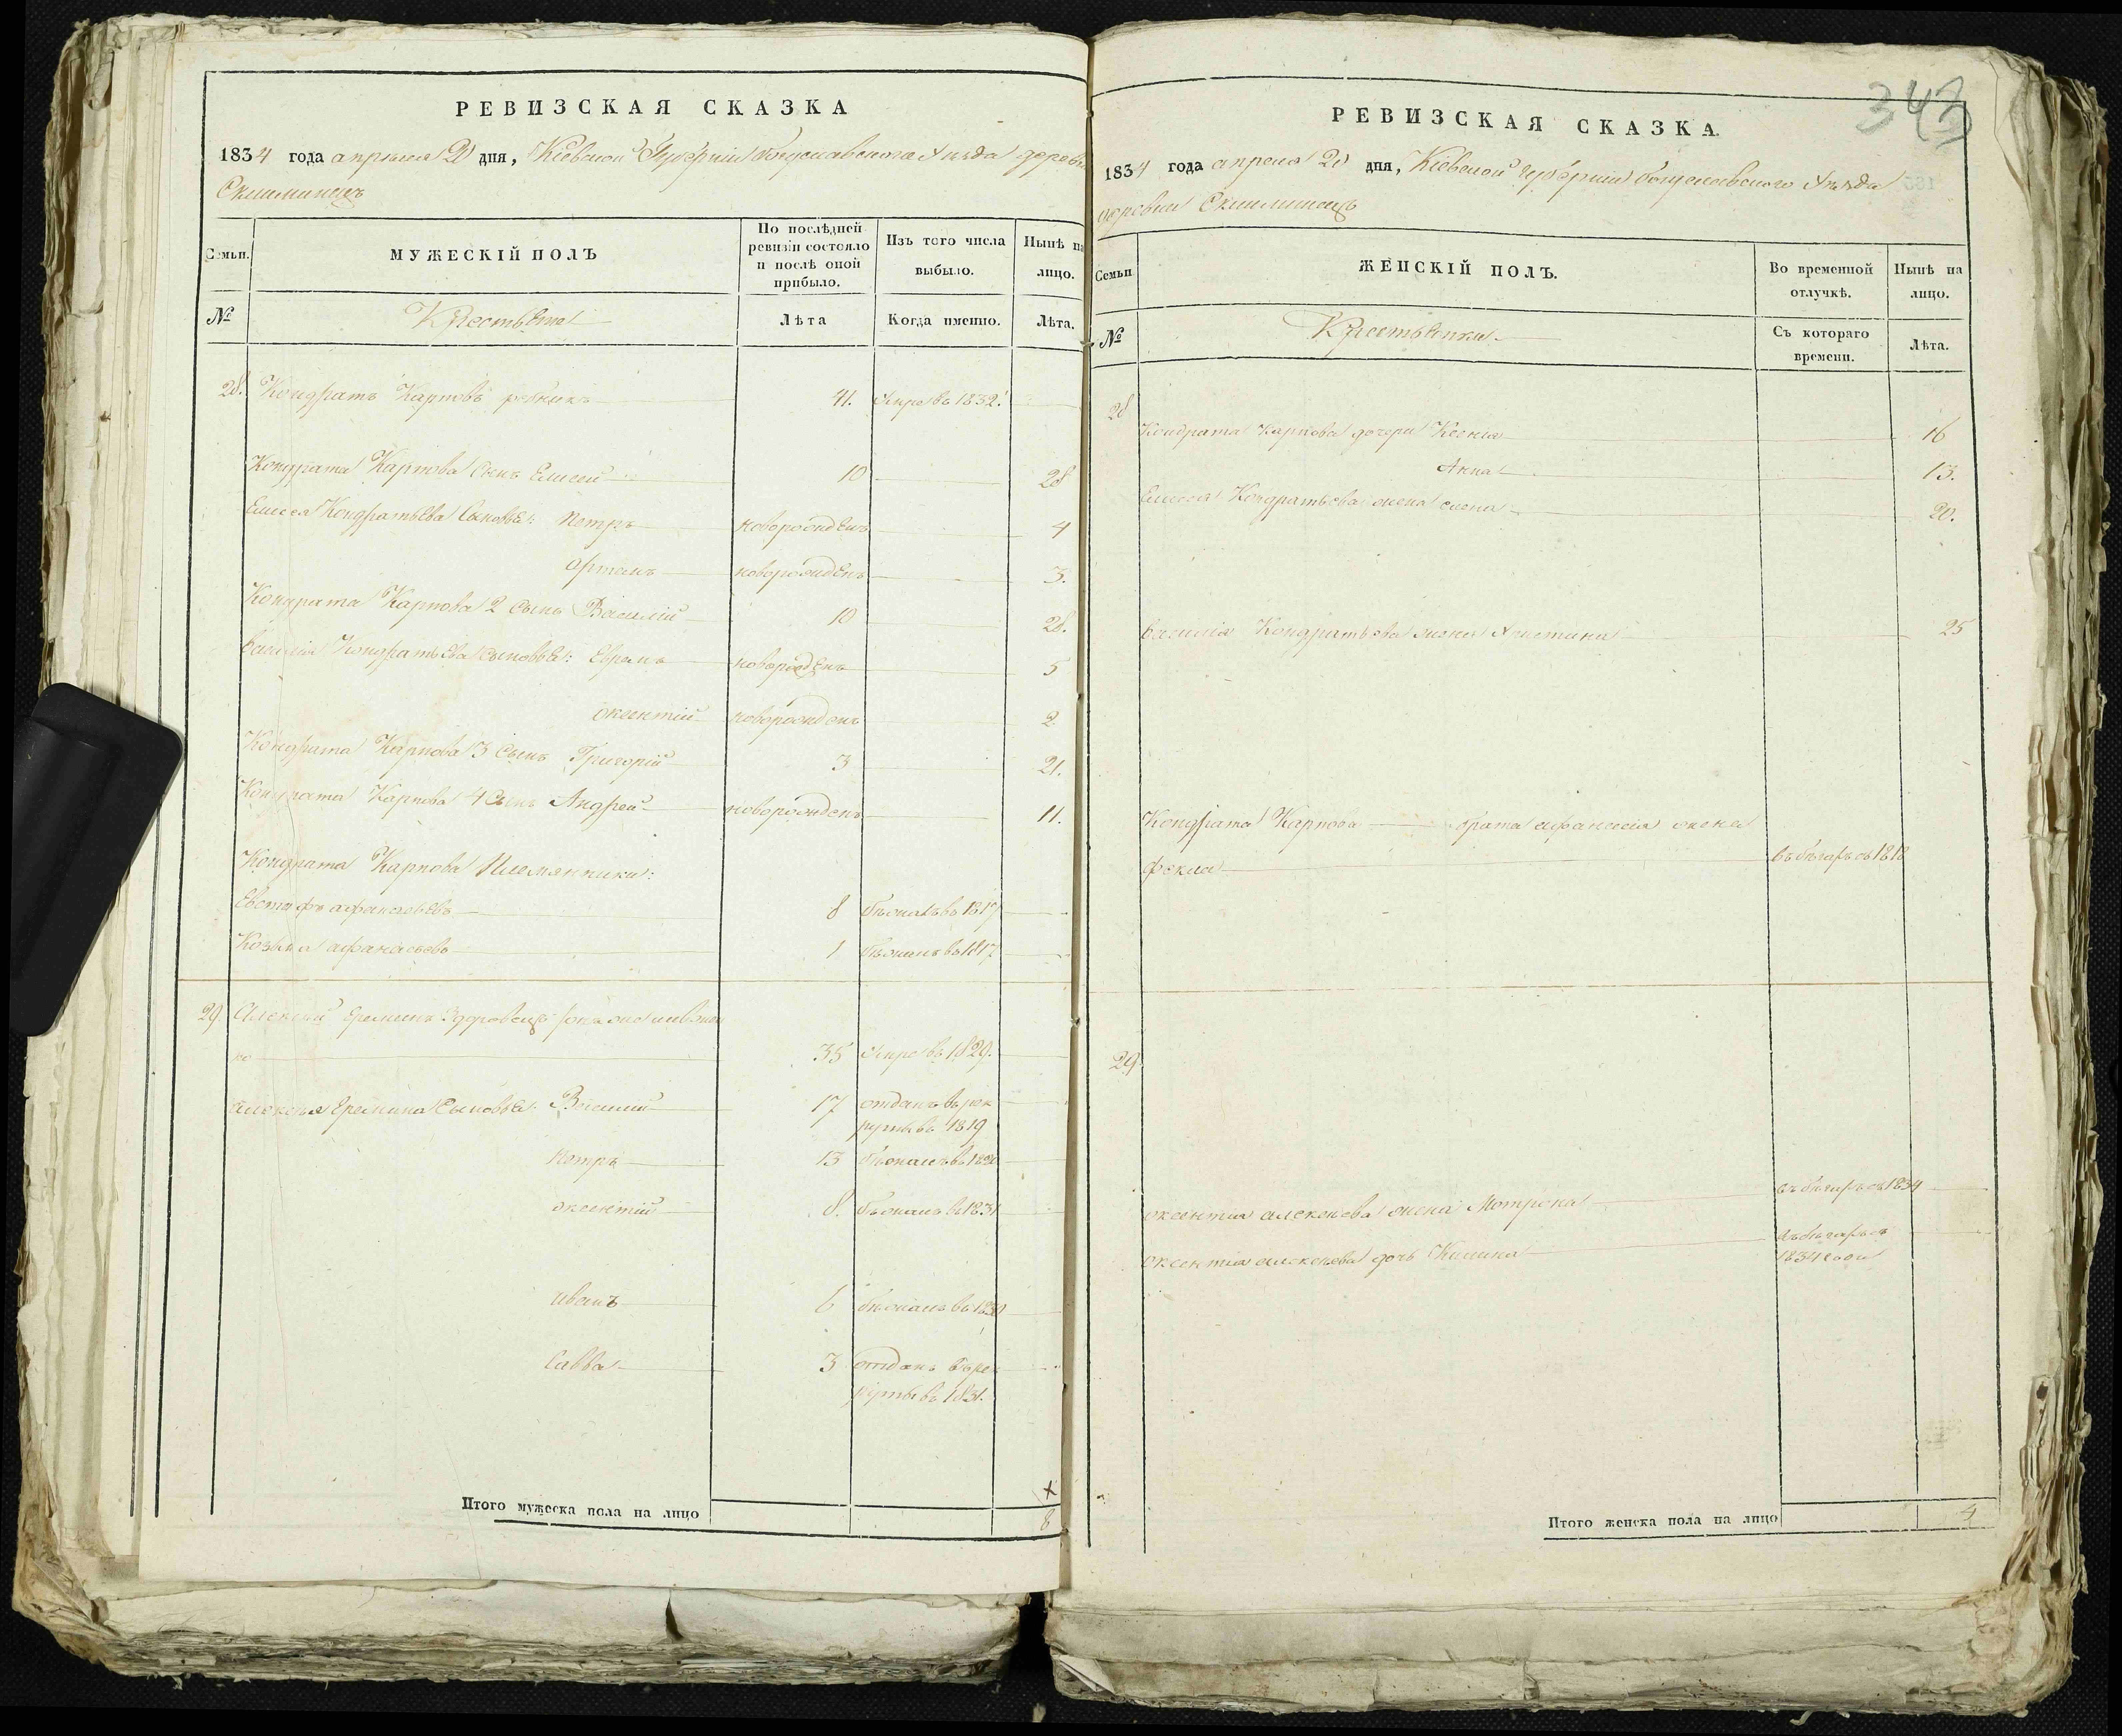 343
РЕВИЗСКАЯ СКАЗКА
1834 года апреля 20 дня, Кіевской Губерніи Богуславского уезда деревн
МУЖЕСКІЙ ПОЛЪ
Семьи.
По послѣдней ревизіи состояло и послѣ оной прибыло.
Изъ того числа выбыло.
Нынѣ на лицо.
№
Крестьяне
Лѣта
Когда именно.
Лѣта.
28. Кондратъ Карповъ 41. умре въ 1832.
Кондрата Карпова сынъ Елисей 10 28
Елисея Кондратьева сыновья: Петръ новорожденъ 4
новорожденъ 3.
Кондрата Карпова 2 сынъ Василій 10 28.
Василія Кондратьева сыновья: новорожденъ 5
оксентій новорожденъ 2
Кондрата Карпова 3 сынъ Григорій 3 21.
Кондрата Карпова 4 сынъ Андрей новорожденъ 11.
Кондрата Карпова Племянники:
Евстафъ афанасьевъ 8 бежалъ въ 1817
Козьма афанасьевъ 1 бежалъ въ 1817
29. Алексей Ереминъ
35 умре въ 1829.
алексея Еремина сыновья: Василий 17 отданъ въ рек
руты въ 1819
Петръ 13 бежалъ въ
оксентій 8. бежалъ въ 1831
иванъ 6 бежалъ въ
Савва 3 отданъ въ рек
руты въ 1831.
Итого мужеска пола на лицо 8
РЕВИЗСКАЯ СКАЗКА.
1834 года апреля 20 дня, Кіевской губерніи богуславского уезда
деревни
Семьи
ЖЕНСКІЙ ПОЛЪ.
Во временной отлучкѣ.
Нынѣ на лицо.
№
Крестьянки
Съ котораго времени.
Лѣта.
28
Кондрата Карпова дочери Ксенія 16
Анна 13.
Елисея Кондратьева жена елена 20.
Василія Кондратьева жена Хистина 25
Кондрата Карпова брата афанасія жена
фекла въ бегахъ съ 1818
29.
оксентія алексеева жена Мотрона въ бегахъ съ 1834
оксентія алексеева дочь Килина въ бегахъ съ
1834 года
Итого женска пола на лицо 4